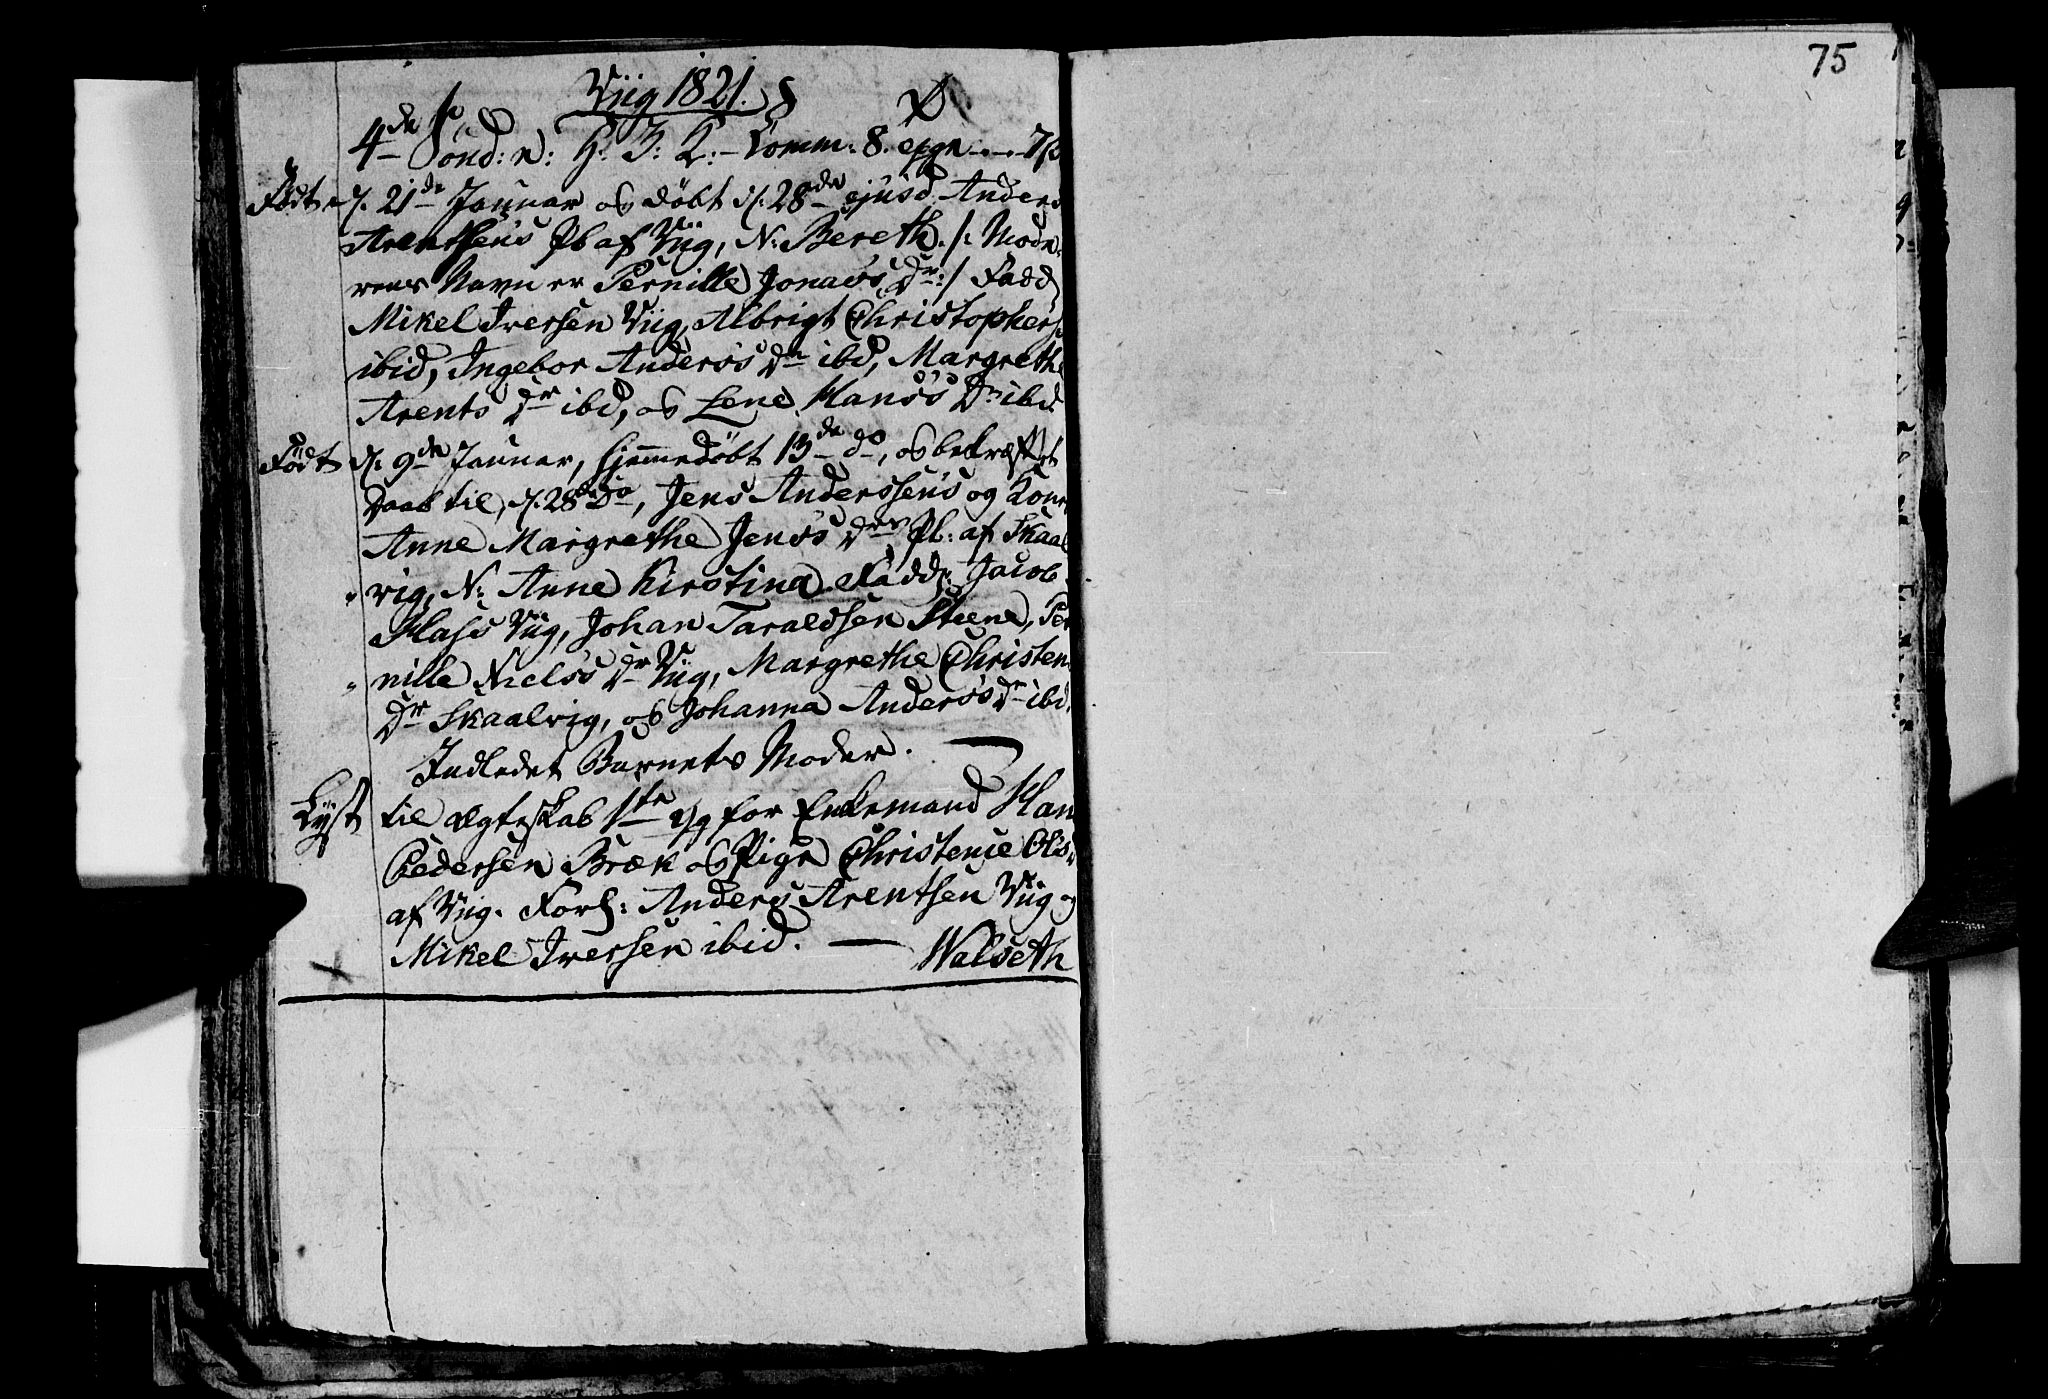 75
Viig 1821.
4de Sönd: n: H. 3: K: - Comm: 8. expn --- 7
Födt d. 21de Januar og döbt d. 28de ejusd. Anders
Arentsens Pb af Viig, N: Bereth. /: Mode-
rens Navn er Pernille Jonas's Dr: / Fadd:
Mikel Iversen Viig, Albrigt Christophers
ibid, Ingebor Anders's Dr ibd, Margrethe
Arents Dr ibd, og Lene Hans's Dr ibd.
Födt d. 9de Januar, hjemmedöbt 13de do, og bekræftet
Daab til, d. 28de Do, Jens Anderssens og Kone
Anne Margrethe Jens's Drs Pb: af Skaal
vig, N: Anne Kirstina. Fadd: Jacob
Hass Viig, Johan Taraldsen Steene, Per
nille Niels's Dr Viig, Margrethe Christen
Dr Skaalvig, og Johanna Anders's Dr ibd.
Indledet Barnets Moder.
Lyst til ægteskab 1ste g for Enkemand Han
Pedersen Bræk og Pige Christence Ols
af Viig. Forl: Anders Arentsen Viig og
Mikel Iversen ibid. — Walseth